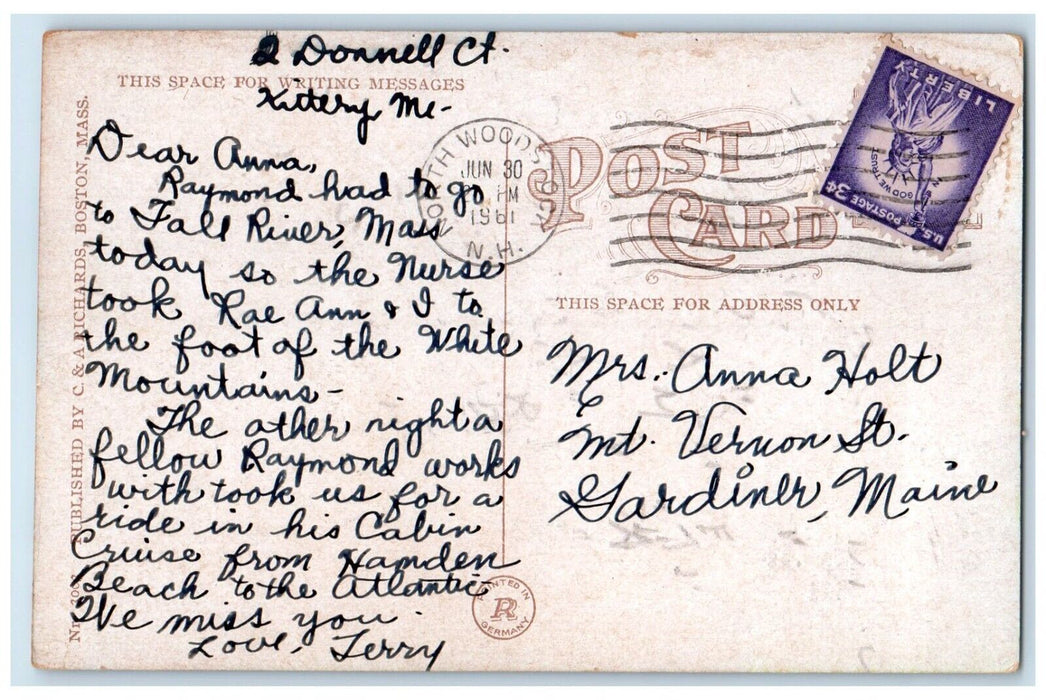 2 Donnell Ct.
THIS SPACE FOR WRITING MESSAGES
Kittery, Me-
Dear Anna,
Raymond had to go
to Fall River, Mass
today so the Nurse
took Rae Ann & I to
the foot of the White
Mountains-
The other night a
fellow Raymond works
with took us for a
ride in his Cabin
Cruise from Hamden
Beach to the Atlantic
We miss you
Love, Terry
PUBLISHED BY C. & A. RICHARDS, BOSTON, MASS.
NORTH WOODSTOCK
JUN 30
PM
1961
N.H.
POST
CARD
LIBERTY
IN GOD WE TRUST
U.S. POSTAGE 3¢
THIS SPACE FOR ADDRESS ONLY
Mrs. Anna Holt
Mt. Vernon St.
Gardiner, Maine
PRINTED IN
GERMANY